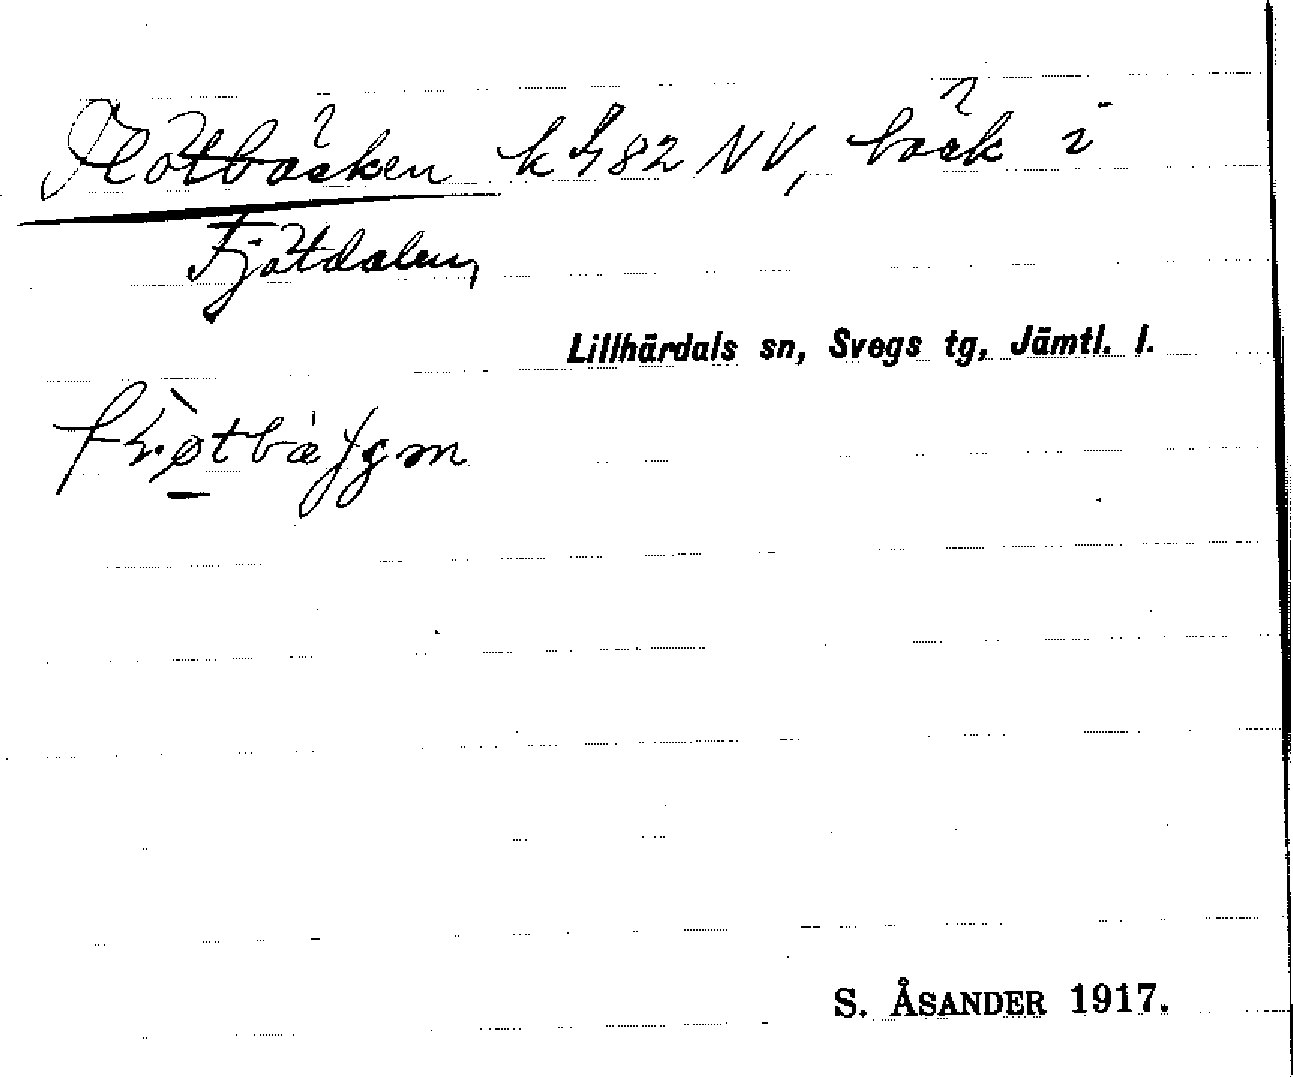 Flötbäcken k 582 NV, bäck i
Fjätdalen,
Lillhärdals sn, Svegs tg, Jämtl. l.
S. ÅSANDER 1917.